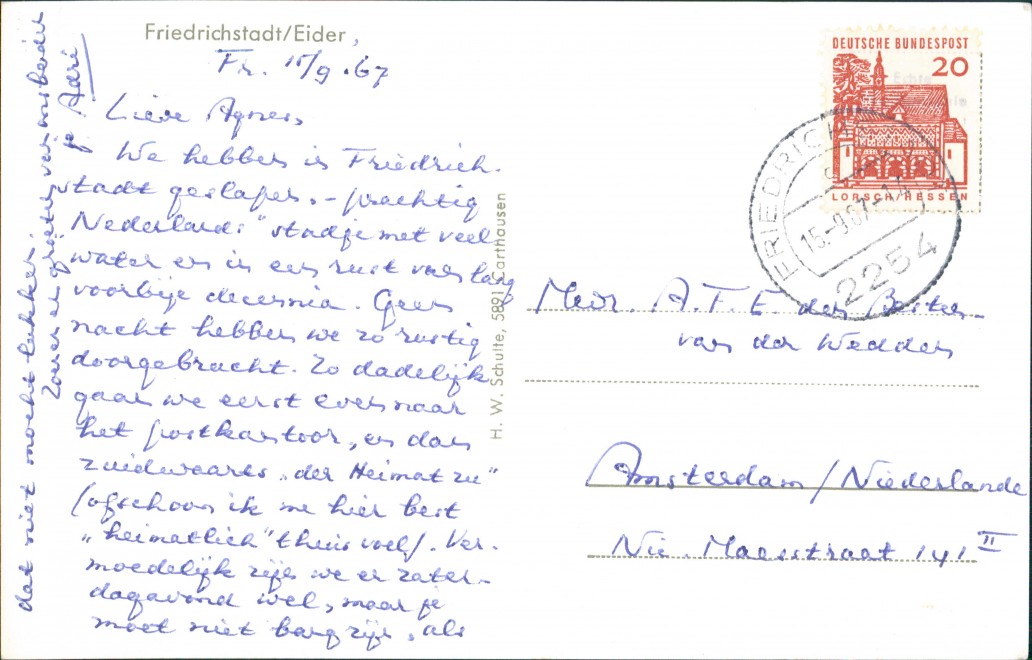 Friedrichstadt/Eider
Fr. 15/9 .67
Lieve Agnes,
We hebben in Friedrich-
stadt geslapen, - prachtig
Nederlands" stadje met veel
water en in een rust van lang
voorbije decennia. Geen
nacht hebben we zo rustig
doorgebracht. Zo dadelijk
gaan we eerst even naar
het postkantoor, en dan
zuidwaarts „der Heimat zu"
(ofschoon ik me hier best
„heimatlich" thuis voel). Ver-
moedelijk zijn we er zater-
dagavond wel, maar je
moet niet bang zijn, als
dat niet mocht lukken.
Zoenen en groeten van ons beider
je Adri
H. W. Schulte, 5891 Carthausen
DEUTSCHE BUNDESPOST
20
LORSCH/HESSEN
FRIEDRICH
15.-9.67-14
2254
Mevr. A.F.E. den Besten-
van der Wedden
Amsterdam / Niederlande
Nic. Maesstraat 141 II